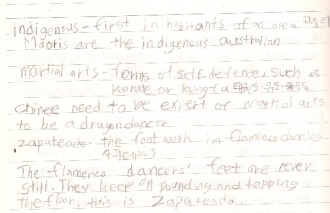 indigenous - first in habitants of an area
Maoris are the indigenous australian
martial arts - forms of self-defence, such as
karate or kungfu
chinese need to be expert of martial arts
to be a dragondancer
zapateado. the foot work in flamenco dancing
The flamenco dancers' feet are never
still. They keep on pounding and tapping
the floor, this is zapateado.